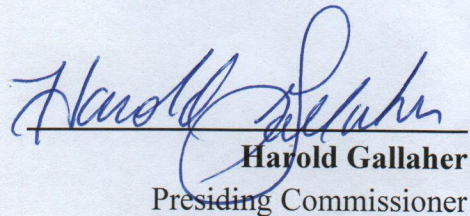 Harold Gallaher
Harold Gallaher
Presiding Commissioner